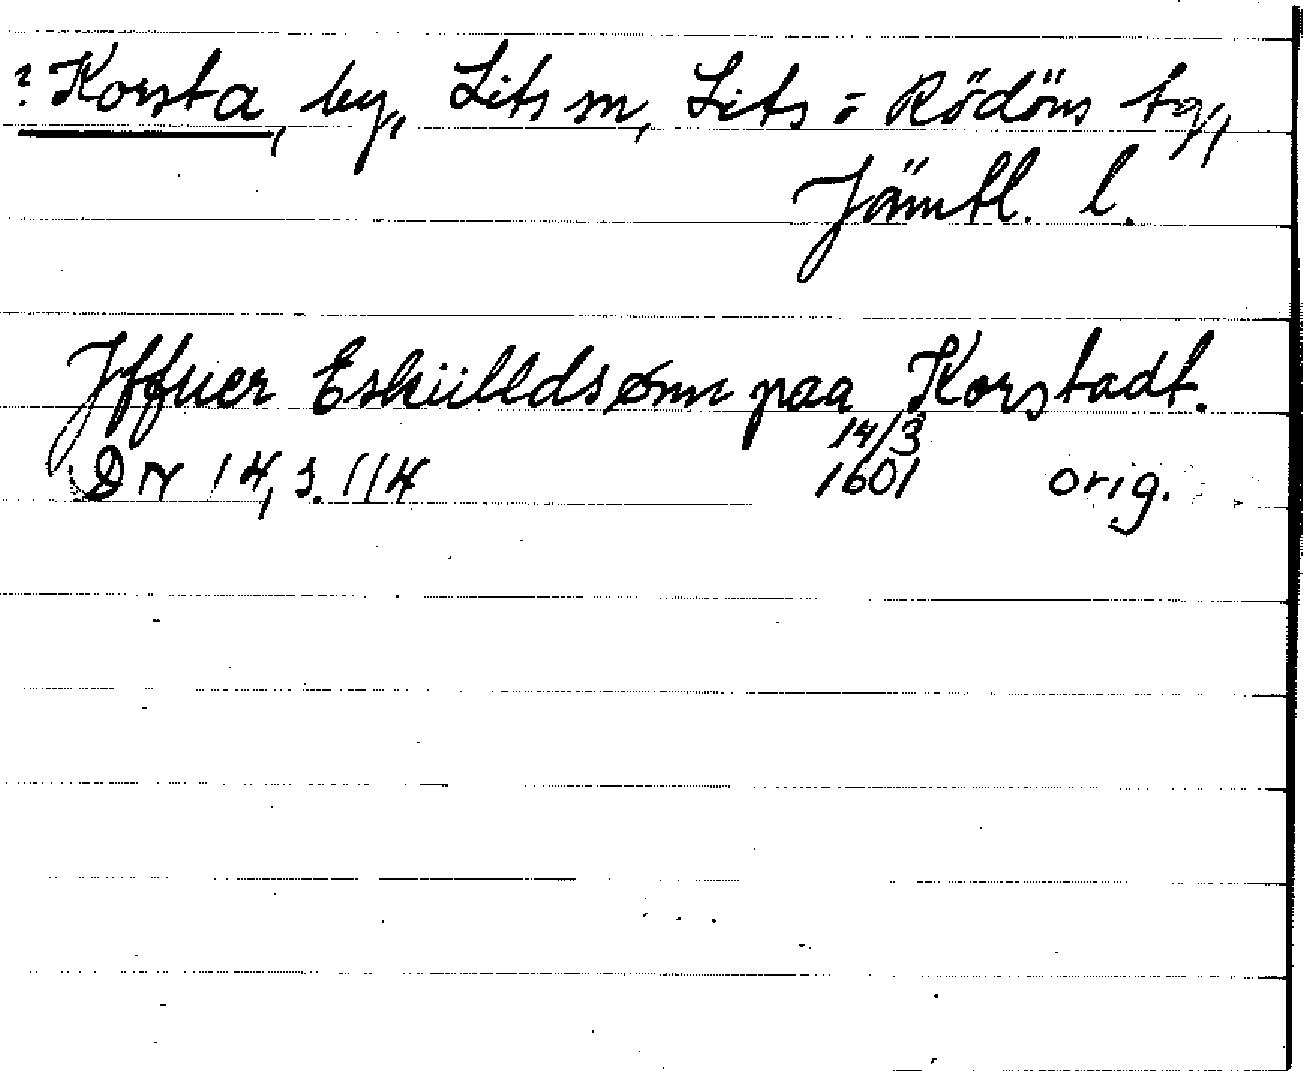 ? Korsta, by, Lits sn, Lits o Rödöns tg,
Jämtl. l.
Jffuer Eskülldsønn paa Korstadt.
DN 14, s. 114 14/3 1601 orig.